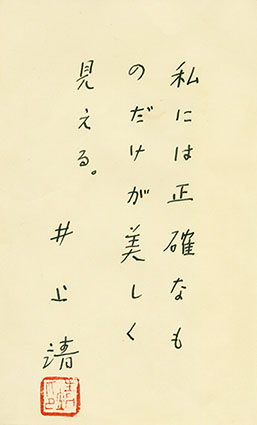 私には正確なも
のだけが美しく
見える。
井上靖